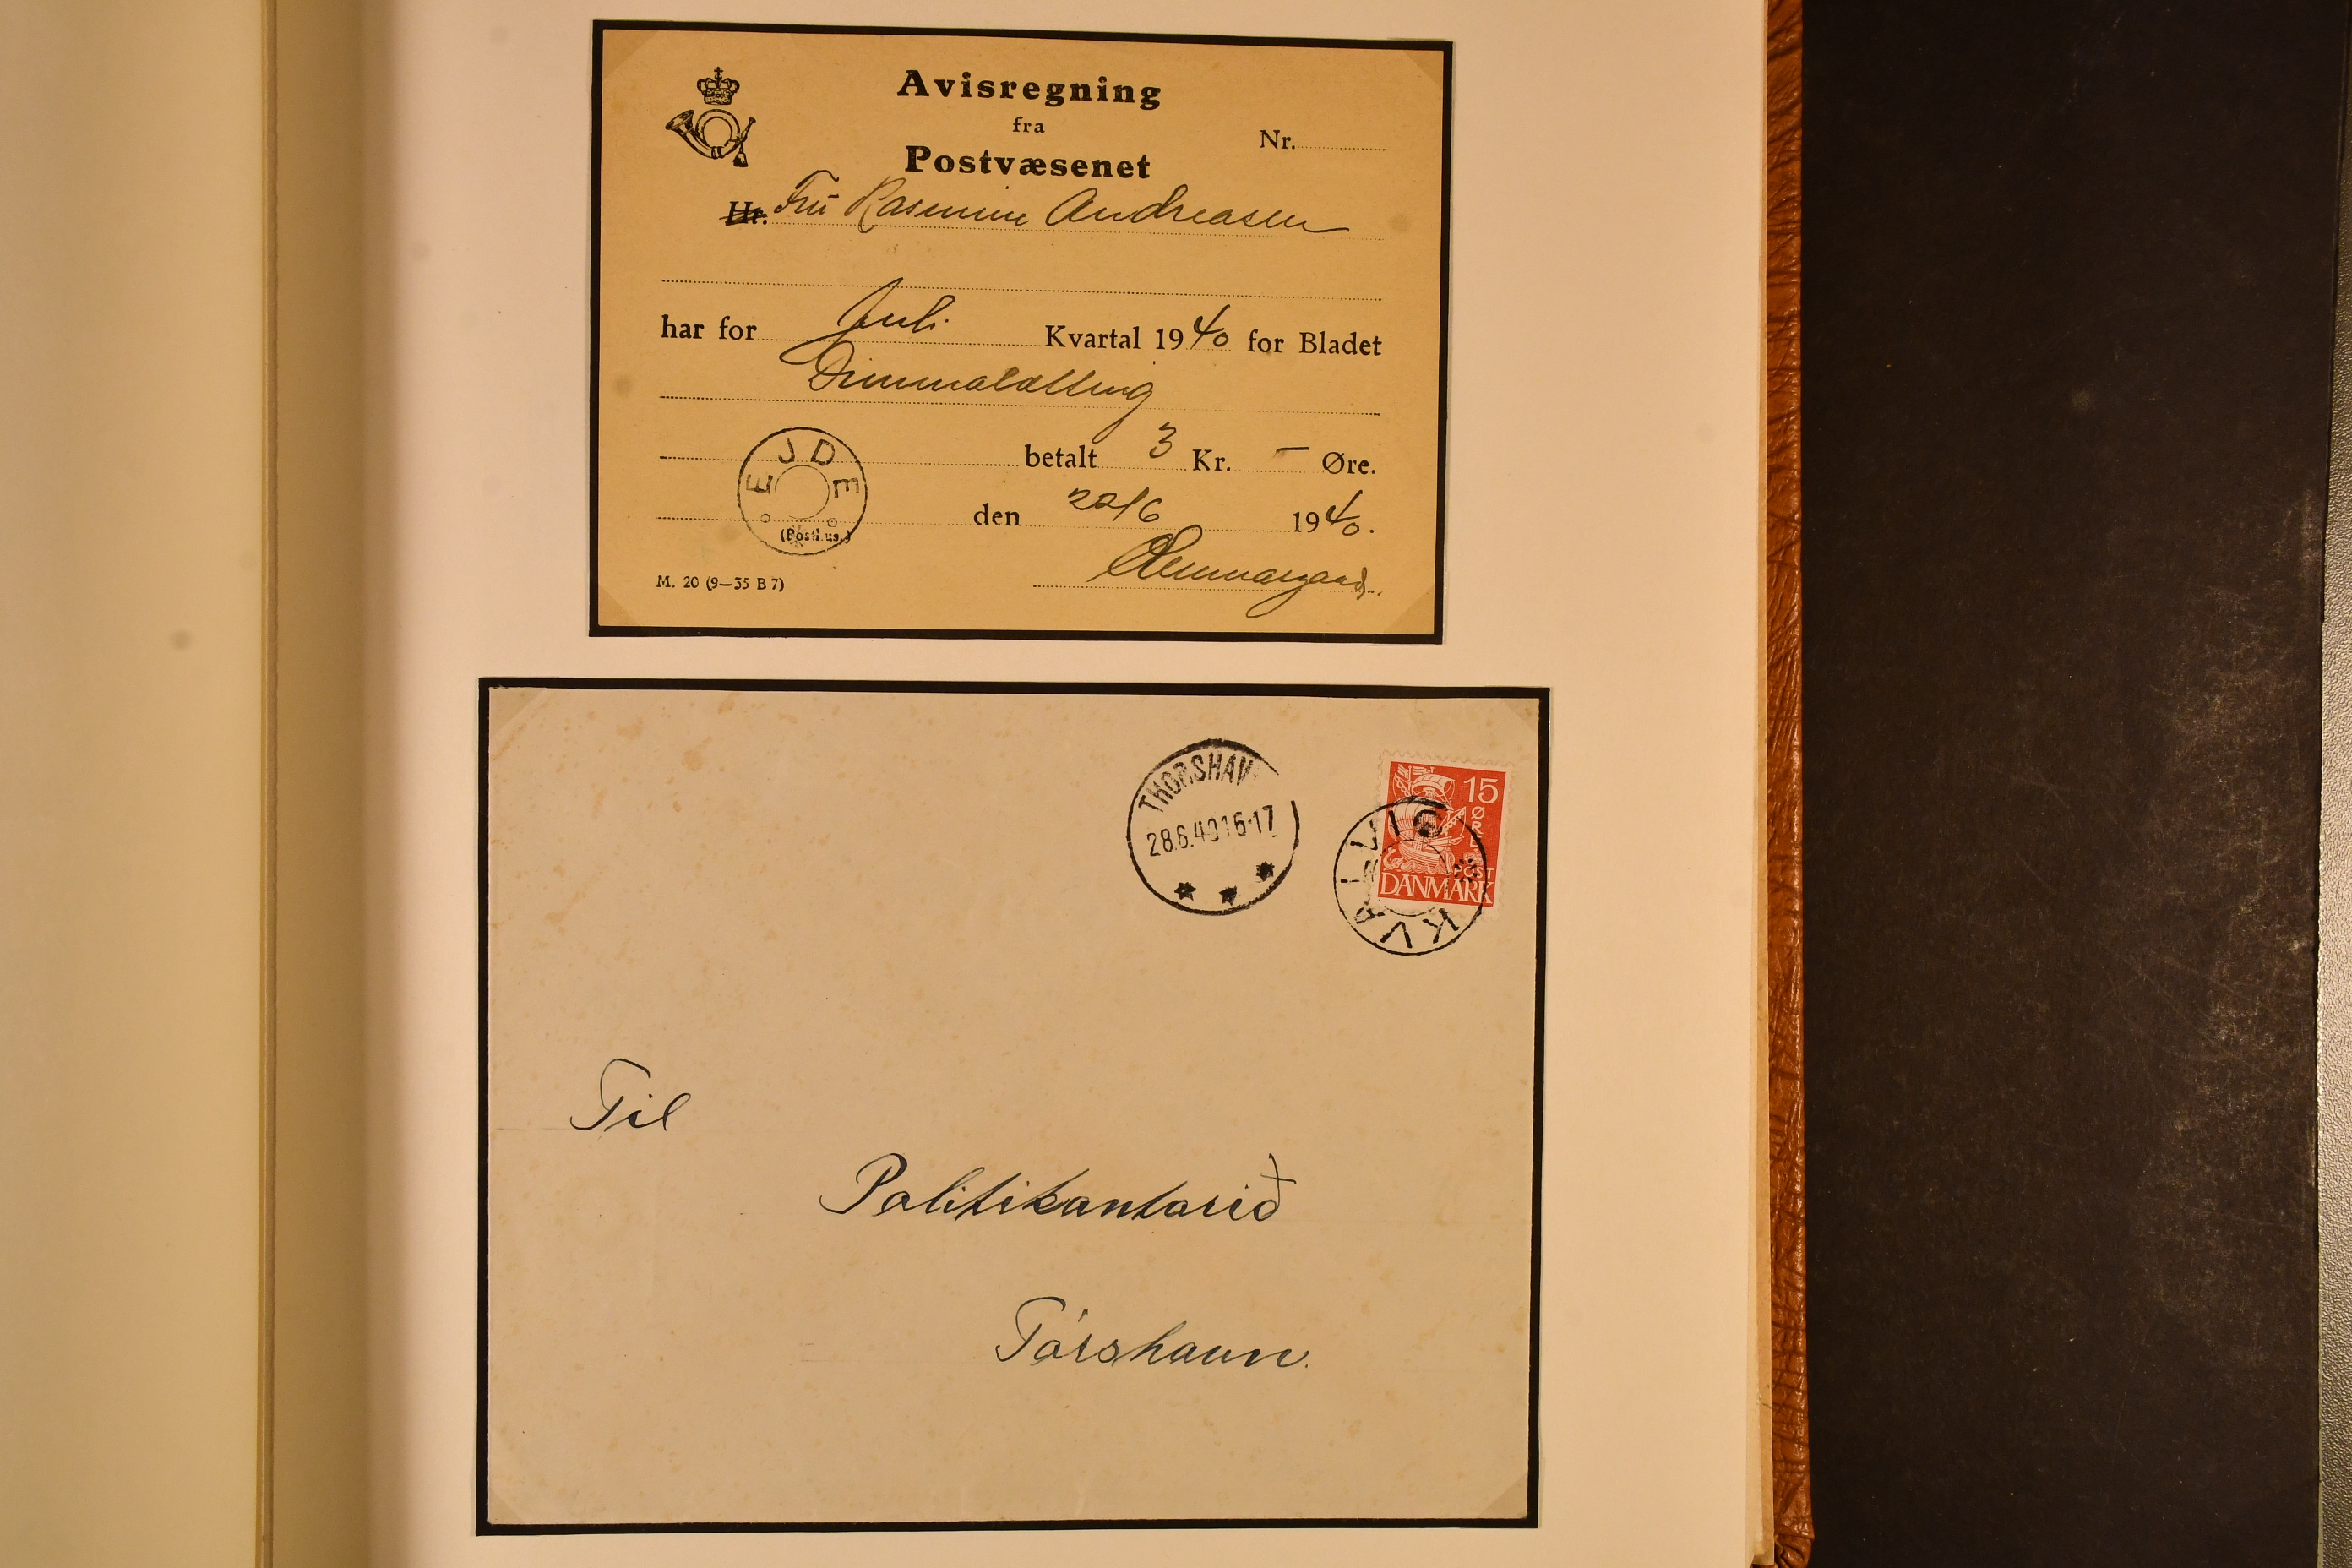 Avisregning
fra
Postvæsenet
Nr.
Hr. Frú Rasmine Andreasen
har for Juli Kvartal 1940 for Bladet
Dimmalætting
betalt 3 Kr. — Øre.
EJDE
(Posthus.)
den 20/6 1940.
M. 20 (9—35 B 7)
THORSHAV
28.6.40 16-17
15
ØRE
POST
DANMARK
KVALVIG
Til
Politikantorið
Tórshavn.